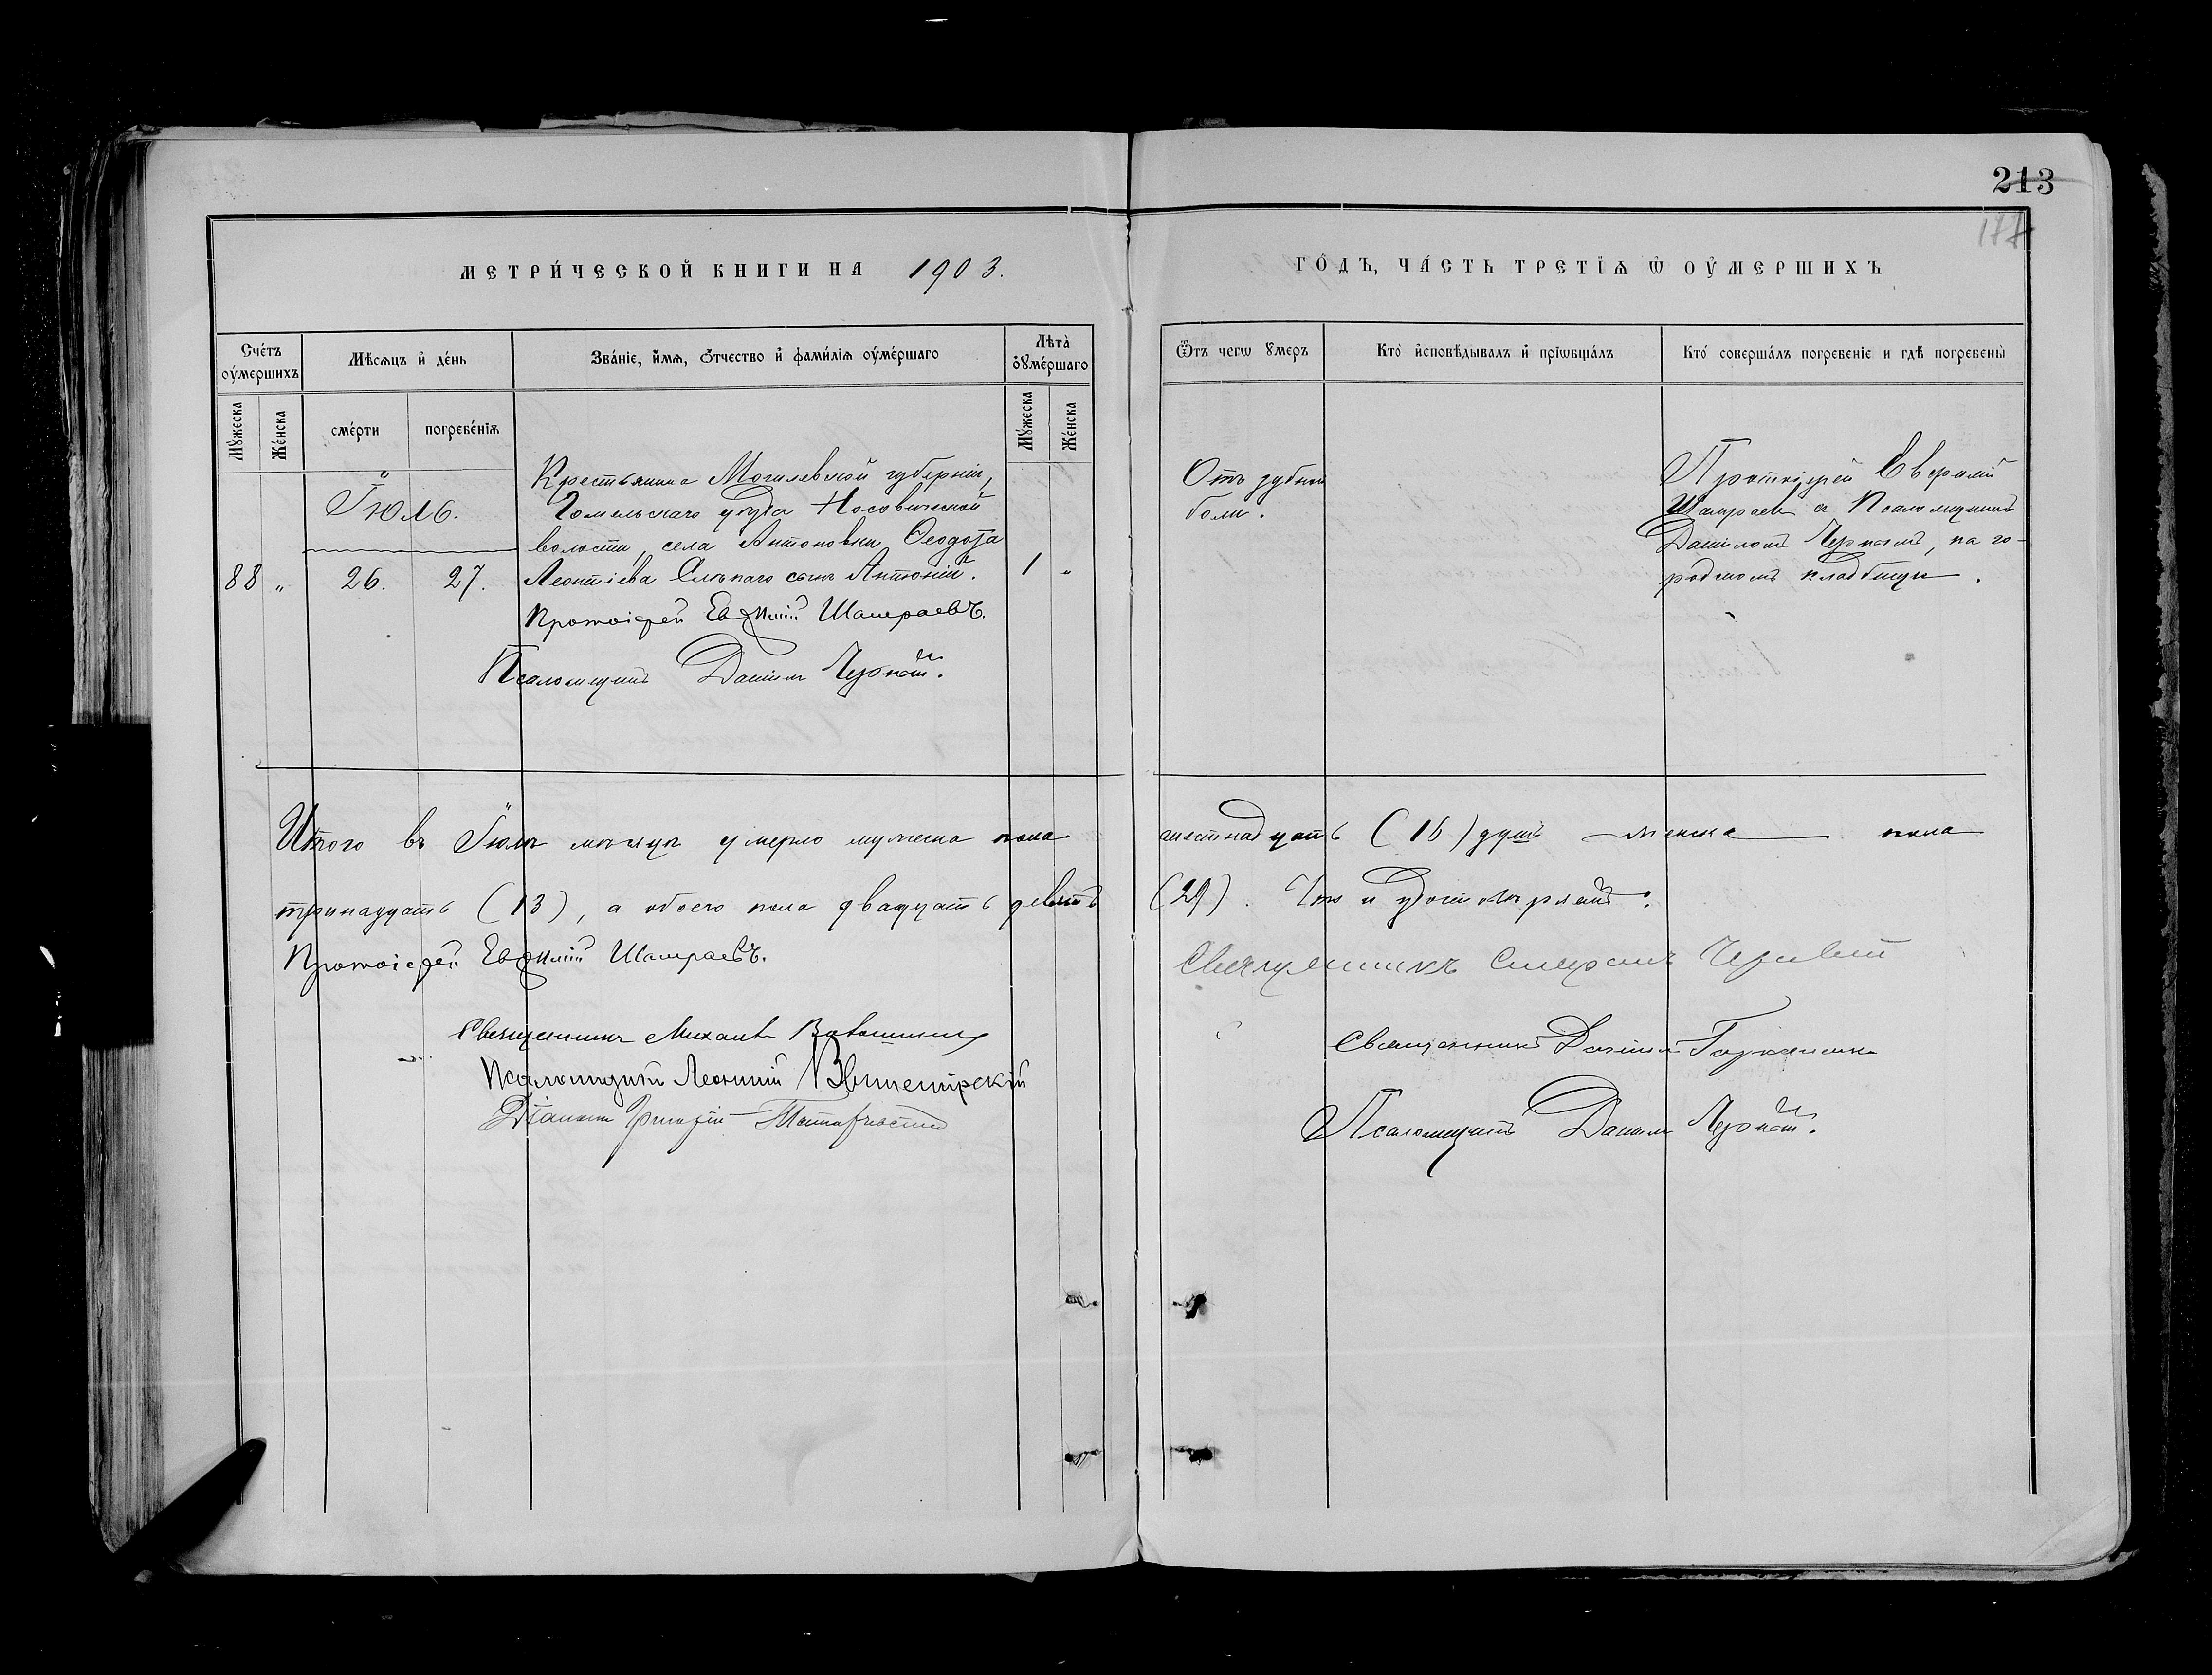 213
177
МЕТРИ́ЧЕСКОЙ КНИГИ НА 1903.
ГО́ДЪ, ЧА́СТЬ ТРЕТІѦ Ѡ ОУ҆МЕРШИХЪ
Сче́тъ оу҆́мершихъ
Мѣсѧцъ и҆ де́нь
Зва́ніе, и҆́мѧ, ѻ҆́тчество и҆ фами́лїѧ оу҆ме́ршаго
Лѣта̀ оу҆ме́ршаго
Ѿ чегѡ ꙋмеръ
Кто̀ и҆сповѣ́дывалъ и҆ прїѡбща́лъ
Кто́ соверша́лъ погребенїе и гдѣ погребены̀
Мꙋ́жеска
Же́нска
сме́рти
погребе́нїѧ
Мꙋ́жеска
Же́нска
Іюль.
Крестьянина Могилевской губерніи,
Гомельскаго уѣзда Носовической
волости, села Антоновки Ѳеодора
88 „ 26. 27. Леонтіева сынъ Антоній. 1 „
Протоіерей Евфимій Шамраевъ.
Псаломщикъ Даніилъ
Отъ зубной
боли.
Протоіерей Евфимій
Шамраевъ съ Псаломщикомъ
Даніиломъ на го-
родскомъ кладбищѣ.
Итого въ Іюлѣ мѣсяцѣ умерло мужеска пола
шестнадцать (16) душъ женска пола
тринадцать (13), а обоего пола двадцать девять
(29). Что и удостовѣряемъ:
Протоіерей Евфимій Шамраевъ.
Священникъ
Священникъ Михаилъ
Священникъ Даніилъ
Псаломщикъ Леонтій
Діаконъ Григорій
Псаломщикъ Даніилъ